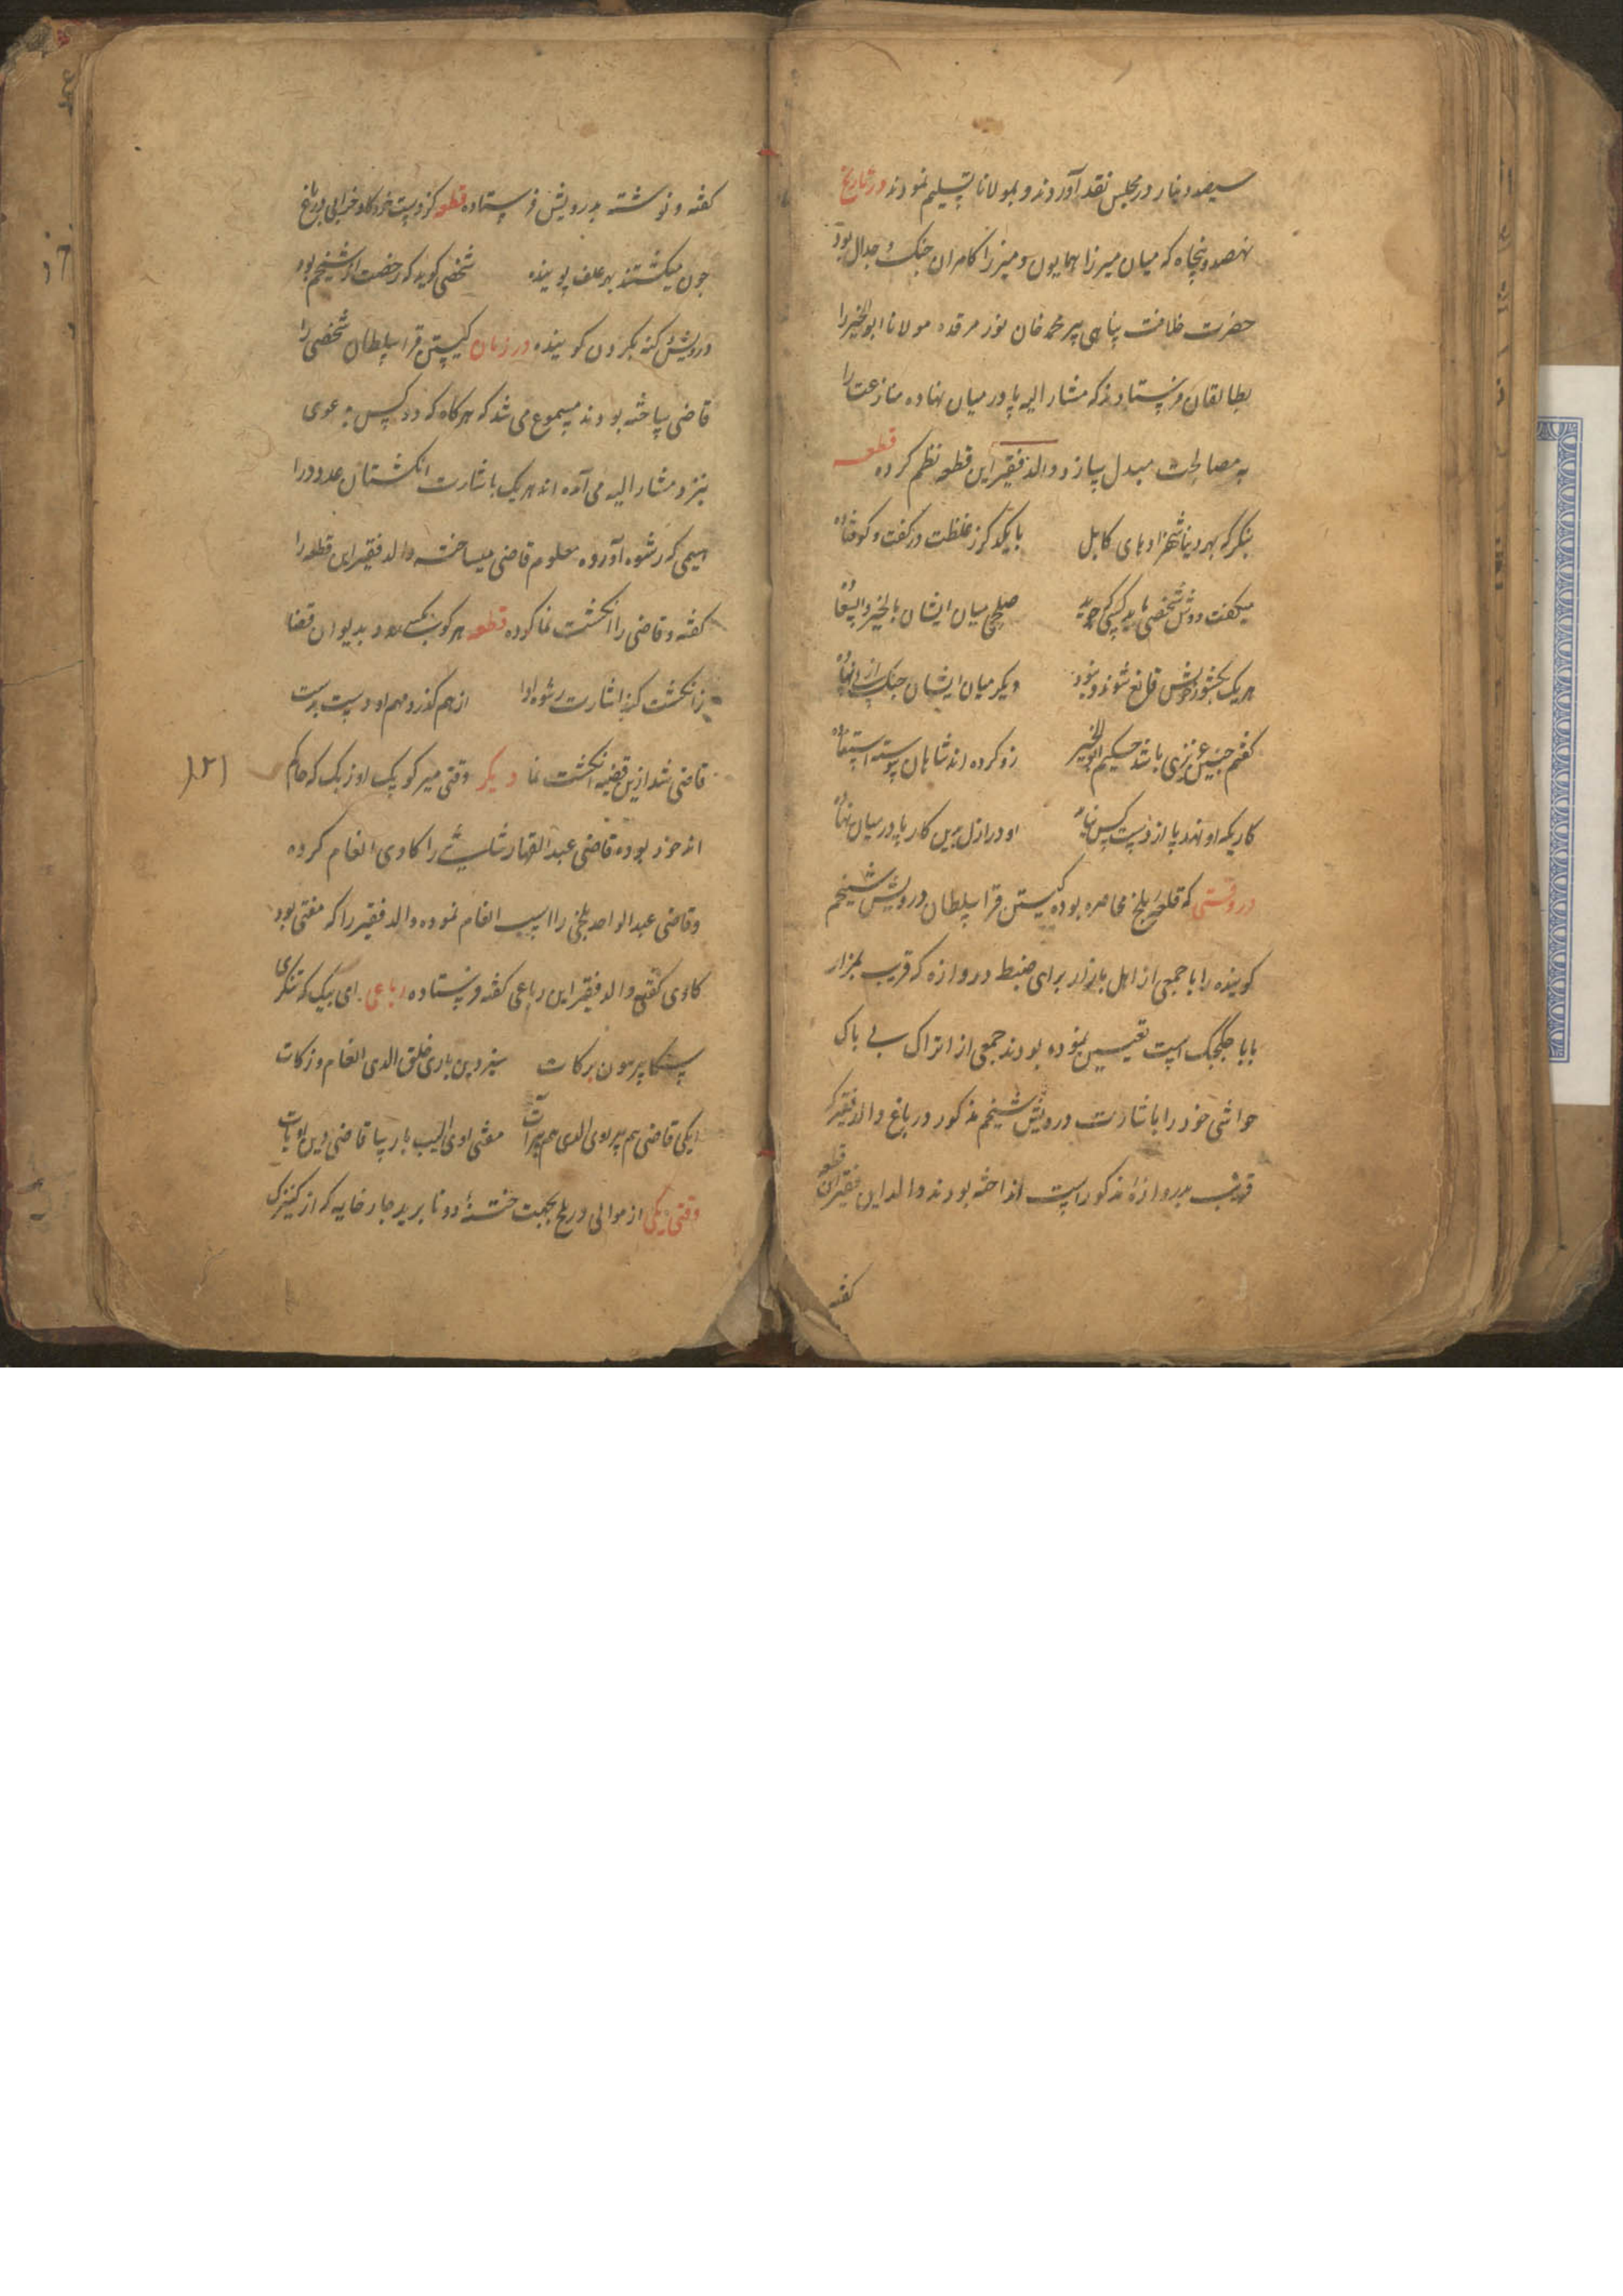 سیصد دینار در مجلس نقد آوردند و بمولانا تسلیم نمودند در تاریخ
نهصد و پنجاه که میان میرزا همایون و میرزا کامران جنک و جدال بود
حضرت خلافت پناهی پیر محمد خان نور مرقده مولانا ابوالخیر را
بطالقان فرستادند که مشار الیه پا در میان نهاده منازعت را
به مصالحت مبدل سازد و والد فقیر این قطعه نظم کرده قطعه
بنکر که بهر دنیا شهزادهای کابل
با یکدکر ز غلظت در کفت و کو فتاده
میکفت دوش شخصی با
صلحی میان ایشان بالخیر
هر یک بکشور خویش قانع شوند و نبود
دیکر میان ایشان جنک
کفتم چنین عزیزی باشد حکیم ابوالخیر
زو کرده اند شاهان پیوسته
کاریکه او نهد پا از دست کس نیاید
او در ازل برین کار پا در میان نهاده
در وقتی که قلعه بلخ محاصره بوده کیستن قرا سلطان درویش شیخم
کوینده را با جمعی از اهل بازار برای ضبط دروازه که قریب بمزار
بابا جکجک است تعیین نموده بودند جمعی از اتراک بی باک
مواشی خود را باشارت درویش شیخم مذکور در باغ والد فقیر که
قریب بدروازه مذکور است انداخته بودند والد این فقیر این قطعه
کفته
کفته و نوشته بدرویش فرستاده قطعه کز دست خر و کاو خرابی در باغ
چون میکشتند بهر علف پوینده
شخصی کوید که رخصت از شیخم بود
درویش کنه بکردن کوینده در زمان کیستن قرا سلطان شخصی را
قاضی ساخته بودند مسموع می شد که هر کاه که دو کس بدعوی
بنزد مشار الیه می آمده اند هر یک باشارت انکشتان عدد را
سیمی که رشوه آورده معلوم قاضی میساخته والد فقیر این قطعه را
کفته و قاضی را انکشت نما کرده قطعه هر کو بدیوان قضا
ز انکشت کند اشارت رشوه ادا
از هم کذرد مهم او دست بدست
قاضی شد ازین قضیه انکشت نما دیکر وقتی میر کوپک اوزبک که حاکم
اندخود بوده قاضی عبد القهار را کاوی انعام کرده
و قاضی عبد الواحد بلخی را اسب انعام نموده والد فقیر را که مفتی بود
کاوی کفته والد فقیر این رباعی کفته فرستاده رباعی ای بیک که تنکری
برکات
سیزدین باری خلق الدی انعام و زکات
ایکی قاضی هم بیر اوی الدی هم بیر آت
مفتی اوی الیب بارسا قاضی
وقتی یکی از موالی در بلخ بجهت ختنه